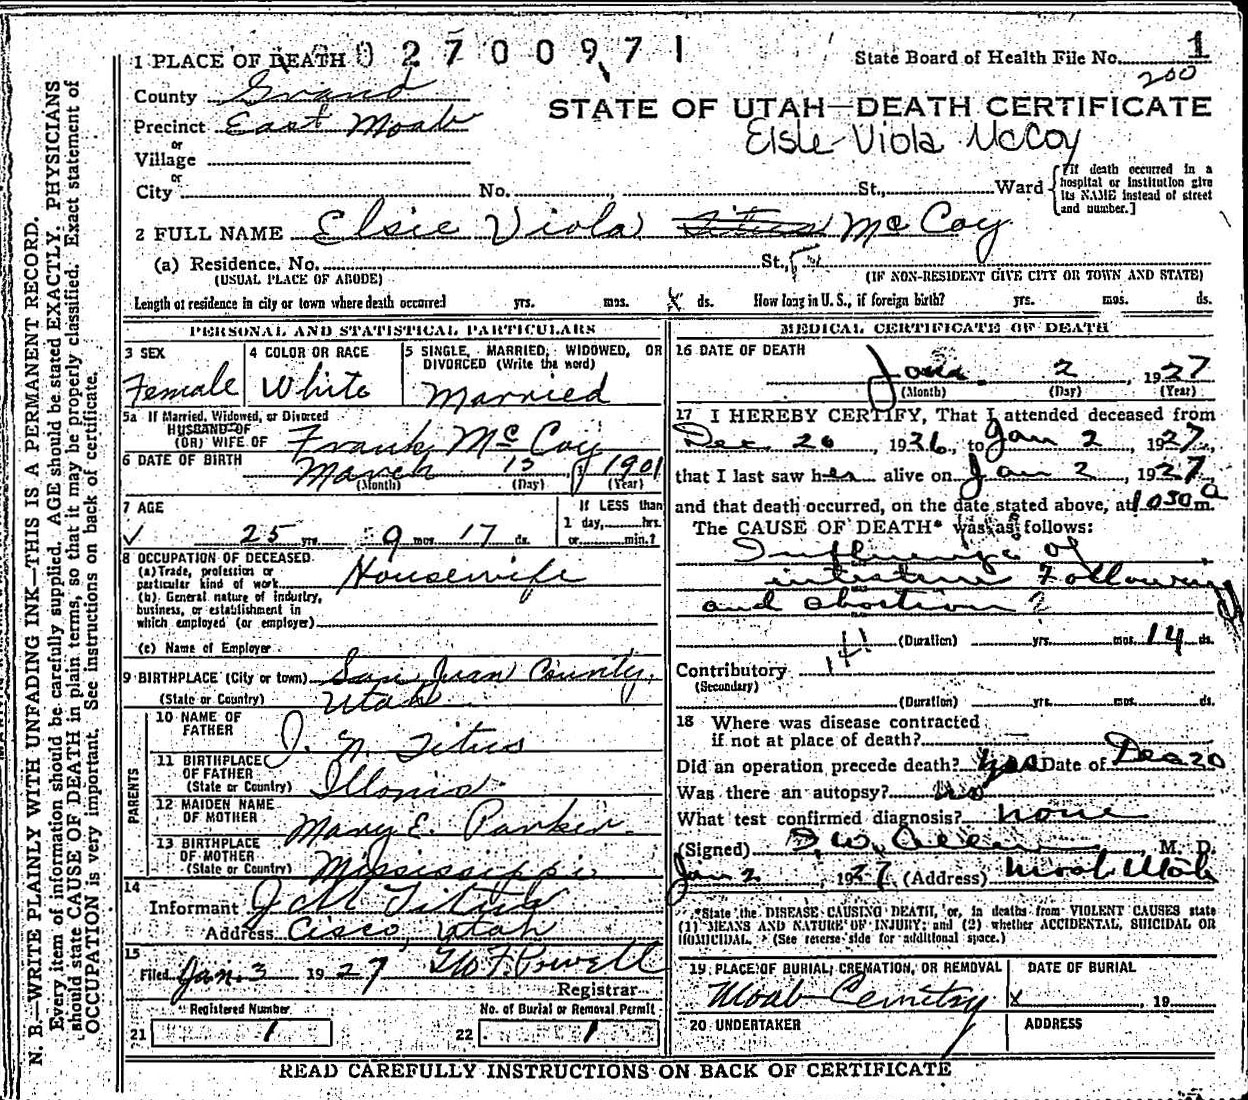 N. B.—WRITE PLAINLY WITH UNFADING INK—THIS IS A PERMANENT RECORD.
Every item of information should be carefully supplied. AGE should be stated EXACTLY. PHYSICIANS
should state CAUSE OF DEATH in plain terms, so that it may be properly classified. Exact statement of
OCCUPATION is very important. See instructions on back of certificate.
1 PLACE OF DEATH 02700971
State Board of Health File No. 1
200
County Grand
STATE OF UTAH—DEATH CERTIFICATE
Precinct East Moab
Elsie Viola McCoy
or
Village
or
City No. St., Ward
[If death occurred in a
hospital or institution give
its NAME instead of street
and number.]
2 FULL NAME Elsie Viola Titus McCoy
(a) Residence. No. St.,
(USUAL PLACE OF ABODE) (IF NON-RESIDENT GIVE CITY OR TOWN AND STATE)
Length of residence in city or town where death occurred yrs. mos. X ds. How long in U. S., if foreign birth? yrs. mos. ds.
PERSONAL AND STATISTICAL PARTICULARS
3 SEX
Female
4 COLOR OR RACE
White
5 SINGLE, MARRIED, WIDOWED, OR
DIVORCED (Write the word)
Married
5a If Married, Widowed, or Divorced
HUSBAND OF
(OR) WIFE OF Frank McCoy
6 DATE OF BIRTH March 15 1901
(Month) (Day) (Year)
7 AGE
25 yrs. 9 mos. 17 ds.
If LESS than
1 day, hrs.
or min.?
8 OCCUPATION OF DECEASED
(a) Trade, profession or
particular kind of work Housewife
(b) General nature of industry,
business, or establishment in
which employed (or employer)
(c) Name of Employer
9 BIRTHPLACE (City or town) San Juan County,
(State or Country) Utah
PARENTS
10 NAME OF
FATHER J. N. Titus
11 BIRTHPLACE
OF FATHER
(State or Country) Illonis
12 MAIDEN NAME
OF MOTHER Mary E. Parker
13 BIRTHPLACE
OF MOTHER
(State or Country) Mississippi
14
Informant J M Titus
Address Cisco, Utah
15
Filed Jan. 3 1927 Powell
Registrar
Registered Number
21 1
No. of Burial or Removal Permit
22 1
MEDICAL CERTIFICATE OF DEATH
16 DATE OF DEATH
Jan. 2, 1927
(Month) (Day) (Year)
17 I HEREBY CERTIFY, That I attended deceased from
Dec. 20, 1926, to Jan 2 1927,
that I last saw her alive on Jan 2, 1927
and that death occurred, on the date stated above, at 1050 a m.
The CAUSE OF DEATH* was as follows:
Influenza of
intestine Following
and abortion ?
(Duration) yrs. mos. 14 ds.
Contributory
(Secondary)
(Duration) yrs. mos. ds.
18 Where was disease contracted
if not at place of death?
Did an operation precede death? yes Date of Dec 20
Was there an autopsy? no
What test confirmed diagnosis? none
(Signed) M. D.
Jan 2, 1927 (Address) Moab Utah
*State the DISEASE CAUSING DEATH, or, in deaths from VIOLENT CAUSES state
(1) MEANS AND NATURE OF INJURY; and (2) whether ACCIDENTAL, SUICIDAL OR
HOMICIDAL. (See reverse side for additional space.)
19 PLACE OF BURIAL, CREMATION, OR REMOVAL
Moab Cemetry
DATE OF BURIAL
X, 19
20 UNDERTAKER
ADDRESS
READ CAREFULLY INSTRUCTIONS ON BACK OF CERTIFICATE